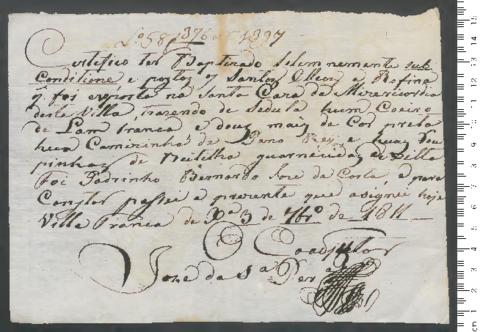 Nº 58 1376 1397
Certifico ter Baptizado solemnemente sub
Conditione e postos os Santos Oleos a Rofina
q. foi exposta na Santa Caza da Mizericordia
desta Villa, trazendo de Sedula hum Coeiro
de Lam branca e dous mais de Cor preta
hua Camizinha de Pano e huas Rou
pinhas de guarnecidas de
Foi Padrinho Bernardo Joze da Costa e para
Constar passei a prezente que asignei hoje
Villa Franca de Xª 3 de 7bro de 1811
O Coadjutor
Joze da Sª Perª